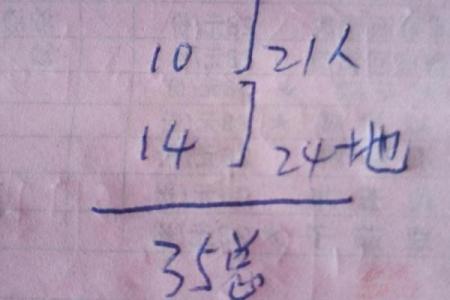 10 ] 21人
14 ] 24地
35总